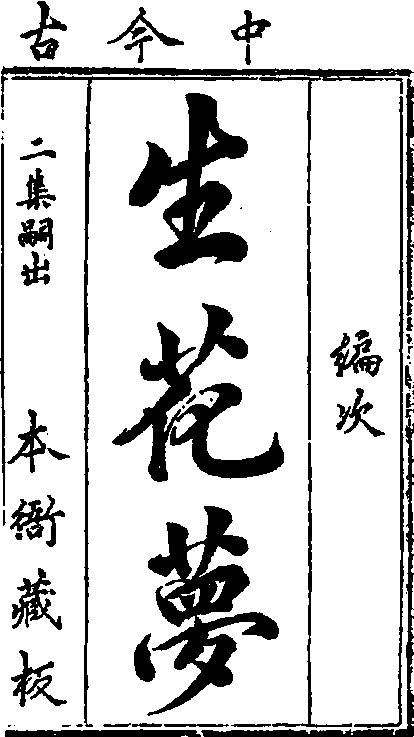 中今古
編次
生花夢
二集嗣出 本衙藏板